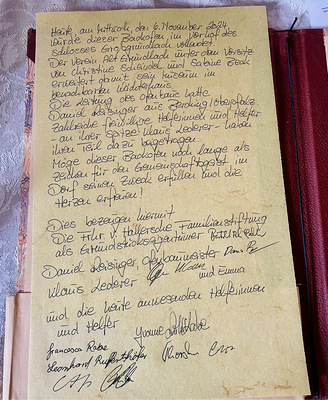 Heute, am Mittwoch, den 6. November 2024,
wurde dieser Backofen im Vorhof des
Schlosses Großgründlach vollendet.
Der Verein Alt Gründlach unter dem Vorsitz
von Christine Scheindel und Sabine Beck
erweitert damit sein Museum im
benachbarten
Die Leitung des Ofenbaus hatte
Daniel Reisinger aus Berching/Oberpfalz.
Zahlreiche freiwillige Helferinnen und Helfer
– an ihrer Spitze Klaus Lederer – haben
ihren Teil dazu beigetragen.
Möge dieser Backofen noch lange als
Zeichen für den Gemeinschaftsgeist im
Dorf seinen Zweck erfüllen und die
Herzen erfreuen!
Dies bezeugen hiermit
Die Frhr. v. Hallersche Familienstiftung
als Grundstückseigentümer
Daniel Reisinger, Ofenbaumeister
Klaus Lederer und Emma
und die heute anwesenden Helferinnen
und Helfer
Yvonne
Francesca Rabe
Leonhard